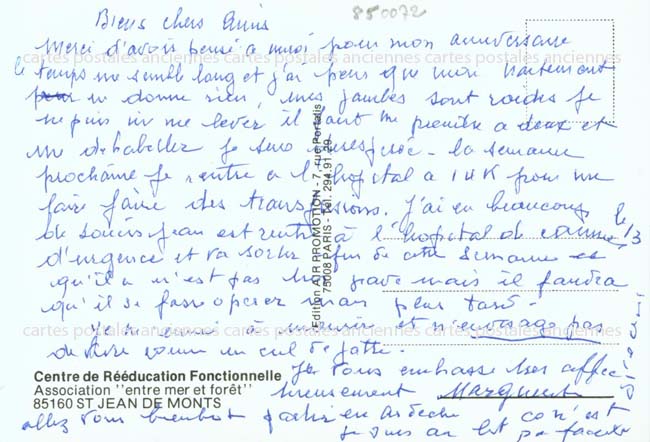 850072
Biens chers Amis
Merci d'avoir pensé a moi pour mon anniversaire
le temps me semble long et j'ai peur que mon traitement
ne donne rien, mes jambes sont roides je
ne puis me lever il faut me prendre a deux et
me deshabiller je suis
la semaine
prochaine je rentre a l'hopital a pour me
faire faire des transfusions. J'ai eu beaucoup
de soucis Jean est rentré à l'hopital de cannes le 13
d'urgence et va sortir fin de cette semaine
qu'il a n'est pas grave mais il faudra
qu'il se fasse operer mais plus tard -
à mourir et n'
pas
de vivre comme un cul de jatte.
Je vous embrasse bien affec-
tueusement
allez vous bientot en ardeche
est pas
Centre de Rééducation Fonctionnelle
Association "entre mer et forêt"
85160 ST JEAN DE MONTS
Edition AIR PROMOTION - 7, rue Portalis
75008 PARIS - Tél. 294.91.29
cartes postales anciennes cartes postales anciennes cartes postales anciennes
cartes postales anciennes cartes postales anciennes cartes postales anciennes